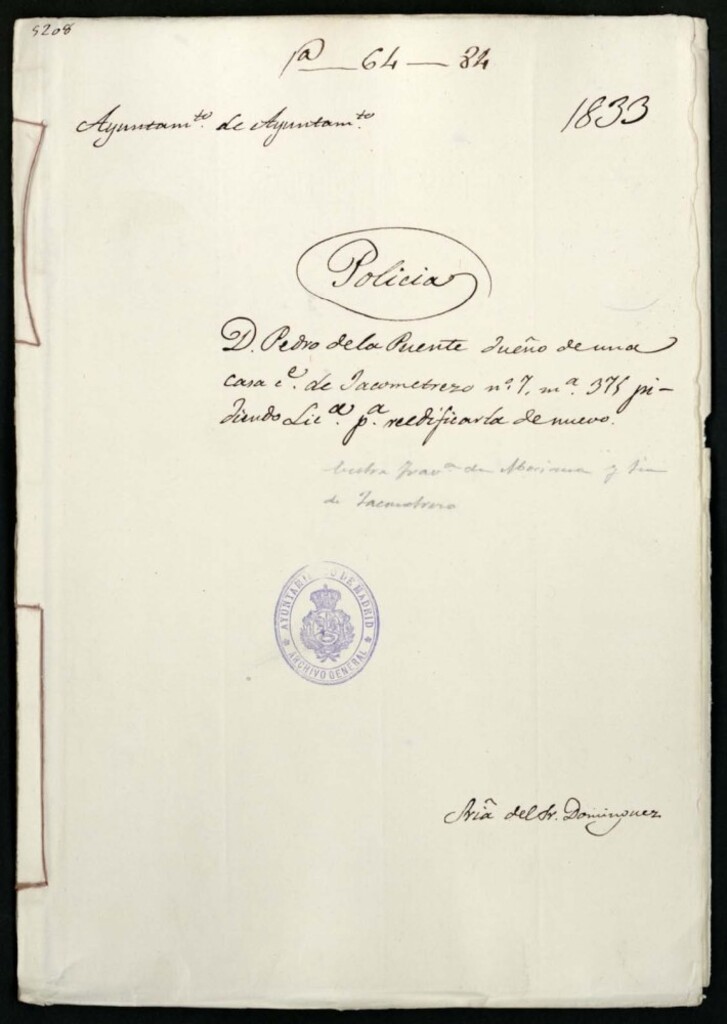 5208
1ª—64—84
Ayuntamto. de Ayuntamto.
1833
Policia
D. Pedro de la Puente dueño de una
casa ce. de Jacometrezo nº. 7, mª. 375 pi-
diendo Lica. pª. reedificarla de nuevo.
de Jacometrezo
AYUNTAMIENTO DE MADRID
ARCHIVO GENERAL
Sría del Sr. Dominguez